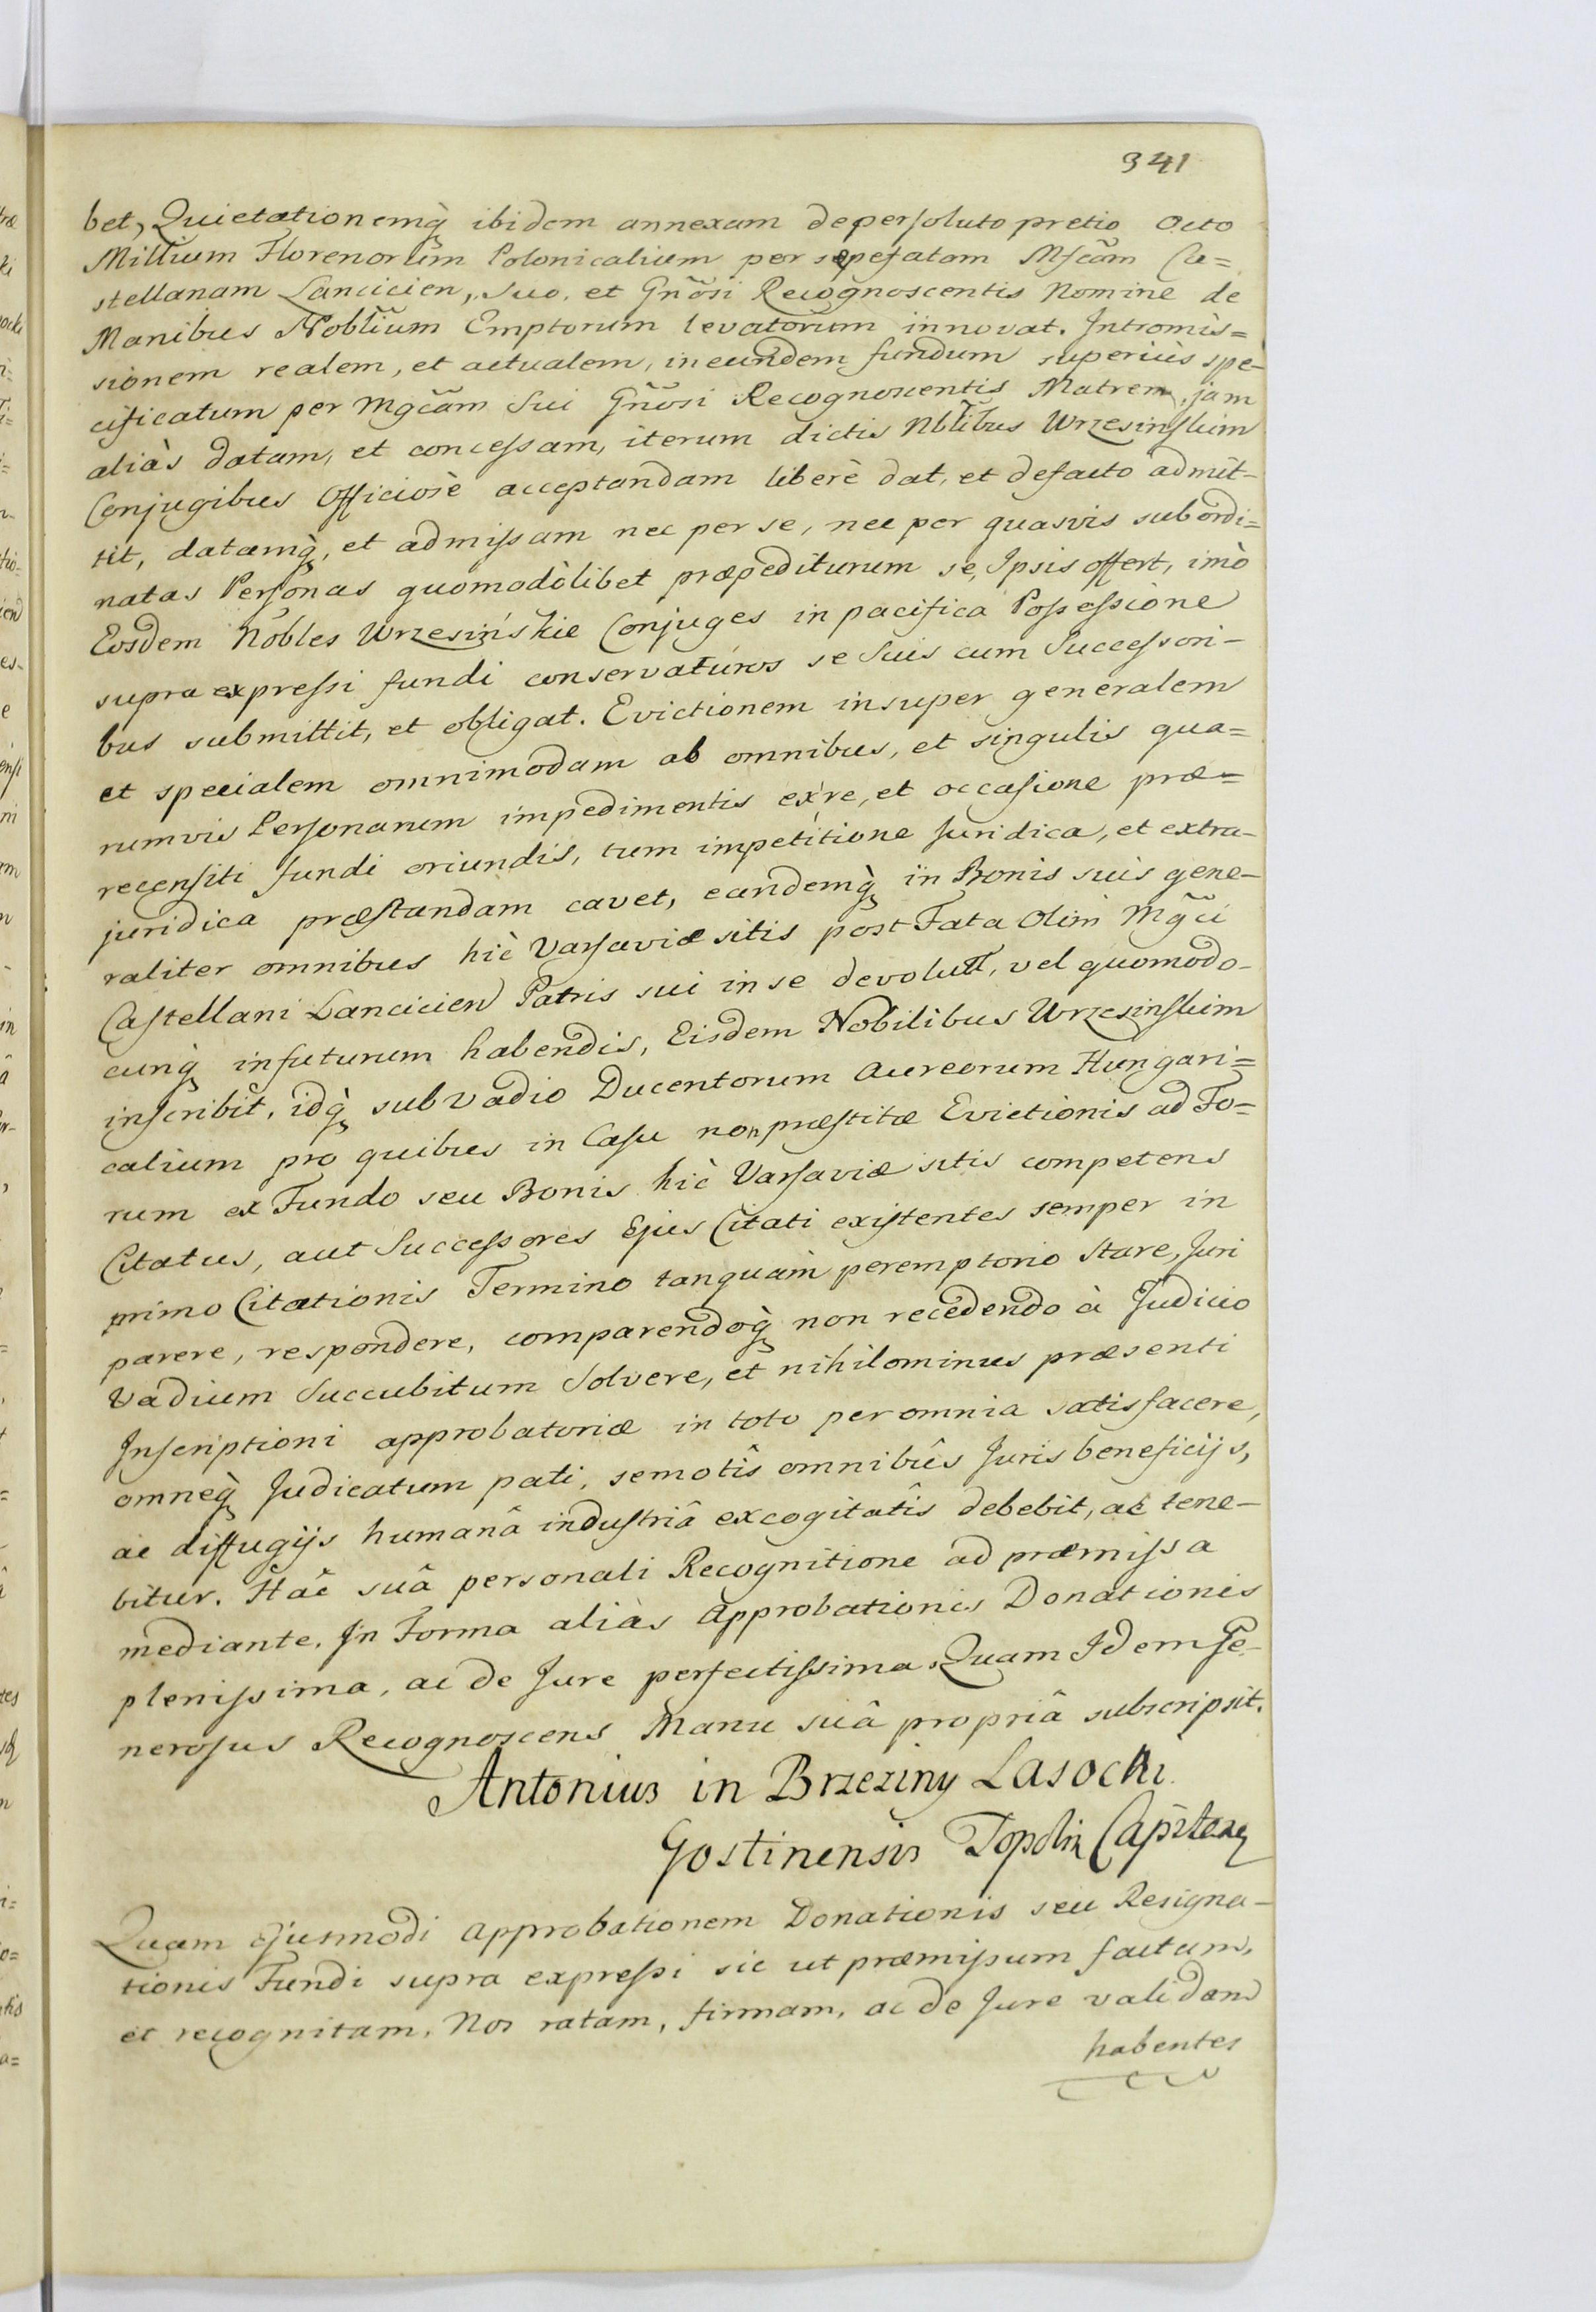 341
bet, Quietationemq̀ ibidem annexam de persoluto pretio Octo
Millium Florenorum Polonicalium per sæpefatam Mfcãm Ca=
stellanam Lancicien, Suo, et Gñosi Recognoscentis Nomine de
Manibus Noblium Emptorum levatorum innovat. Intromis=
sionem realem, et actualem, in eundem fundum superiùs spe-
cificatum per Mgcãm Sui Gñosi Recognoscentis Matrem, jam
aliàs datam, et concessam, iterum dictis Nblibus Wrzesinskim
Conjugibus Officiosè acceptandam liberè dat, et de facto admit-
tit, datamq̀, et admissam nec per se, nec per quasvis subordi=
natas Personas quomodòlibet præpediturum se, Ipsis offert, imò
Eosdem Nobles Wrzesińskie Conjuges in pacifica Possessione
supra expressi fundi conservaturos se Suis cum Successori-
bus submittit, et obligat. Evictionem insuper generalem
et specialem omnimodam ab omnibus, et singulis qua=
rumvis Personarum impedimentis ex re, et occasione præ=
recensiti fundi oriundis, tum impetitione Juridica, et extra-
juridica præstandam cavet, eandemq̀ in Bonis suis gene-
raliter omnibus hic Varsaviæ sitis post Fata Olim Mgc̃i
Castellani Lancicien Patris sui in se devolutt, vel quomodo-
cunq̀ in futurum habendis, Eisdem Nobilibus Wrzesinskim
inscribit, idq̀ sub vadio Ducentorum Aureorum Hungari=
calium pro quibus in Casu non præstitæ Evictionis ad Fo=
rum ex Fundo seu Bonis hic Varsaviæ sitis competens
Citatus, aut Successores Ejus Citati existentes semper in
primo Citationis Termino tanquam peremptorio Stare, Juri
parere, respondere, comparendoq̀ non recedendo à Judicio
Vadium Succubitum Solvere, et nihilominus præsenti
Inscriptioni approbatoriæ in toto per omnia satisfacere,
omneq̀ Judicatum pati, semotîs omnibûs Juris beneficijs,
ac diffugijs humanâ industriâ excogitatîs debebit, ac tene-
bitur. Hâc suâ personali Recognitione ad præmissa
mediante. In Forma aliàs Approbationis Donationis
plenissima, ac de Jure perfectissima. Quam Idem Ge-
nerosus Recognoscens Manu suâ propriâ subscripsit.
Antonius in Brzeziny Lasocki
Gostinensis Topolin Capitane9
Quam ejusmodi Approbationem Donationis seu Resigna-
tionis Fundi supra expressi sic ut præmissum factam,
et recognitam, Nos ratam, firmam, ac de Jure validam
habentes